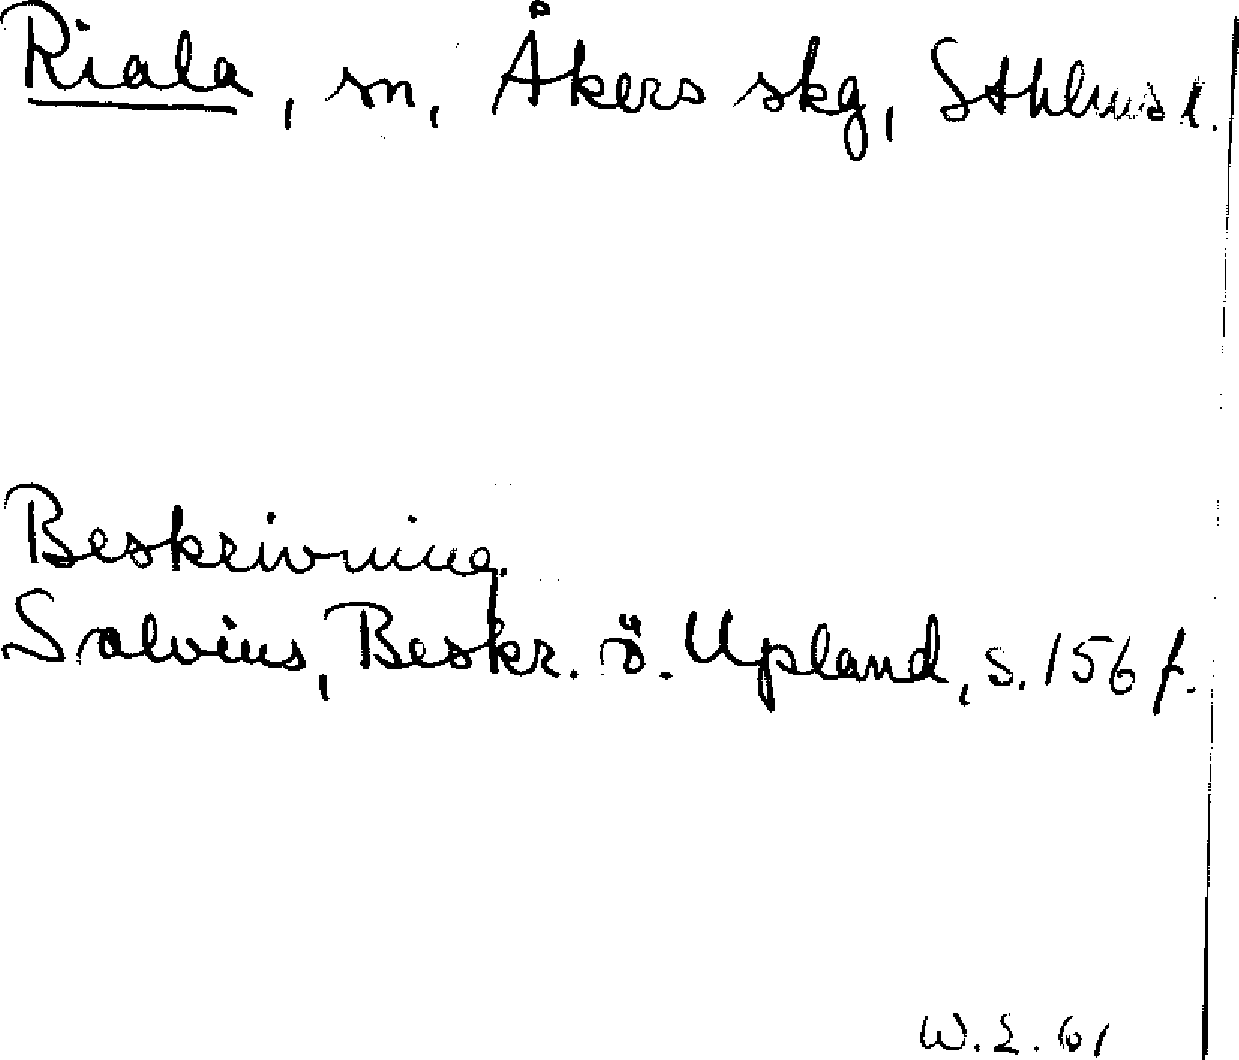 Riala, sn, Åkers skg, Sthlms l.
Beskrivning.
Salvius, Beskr. ö. Upland, s. 156 f.
W. L. 61